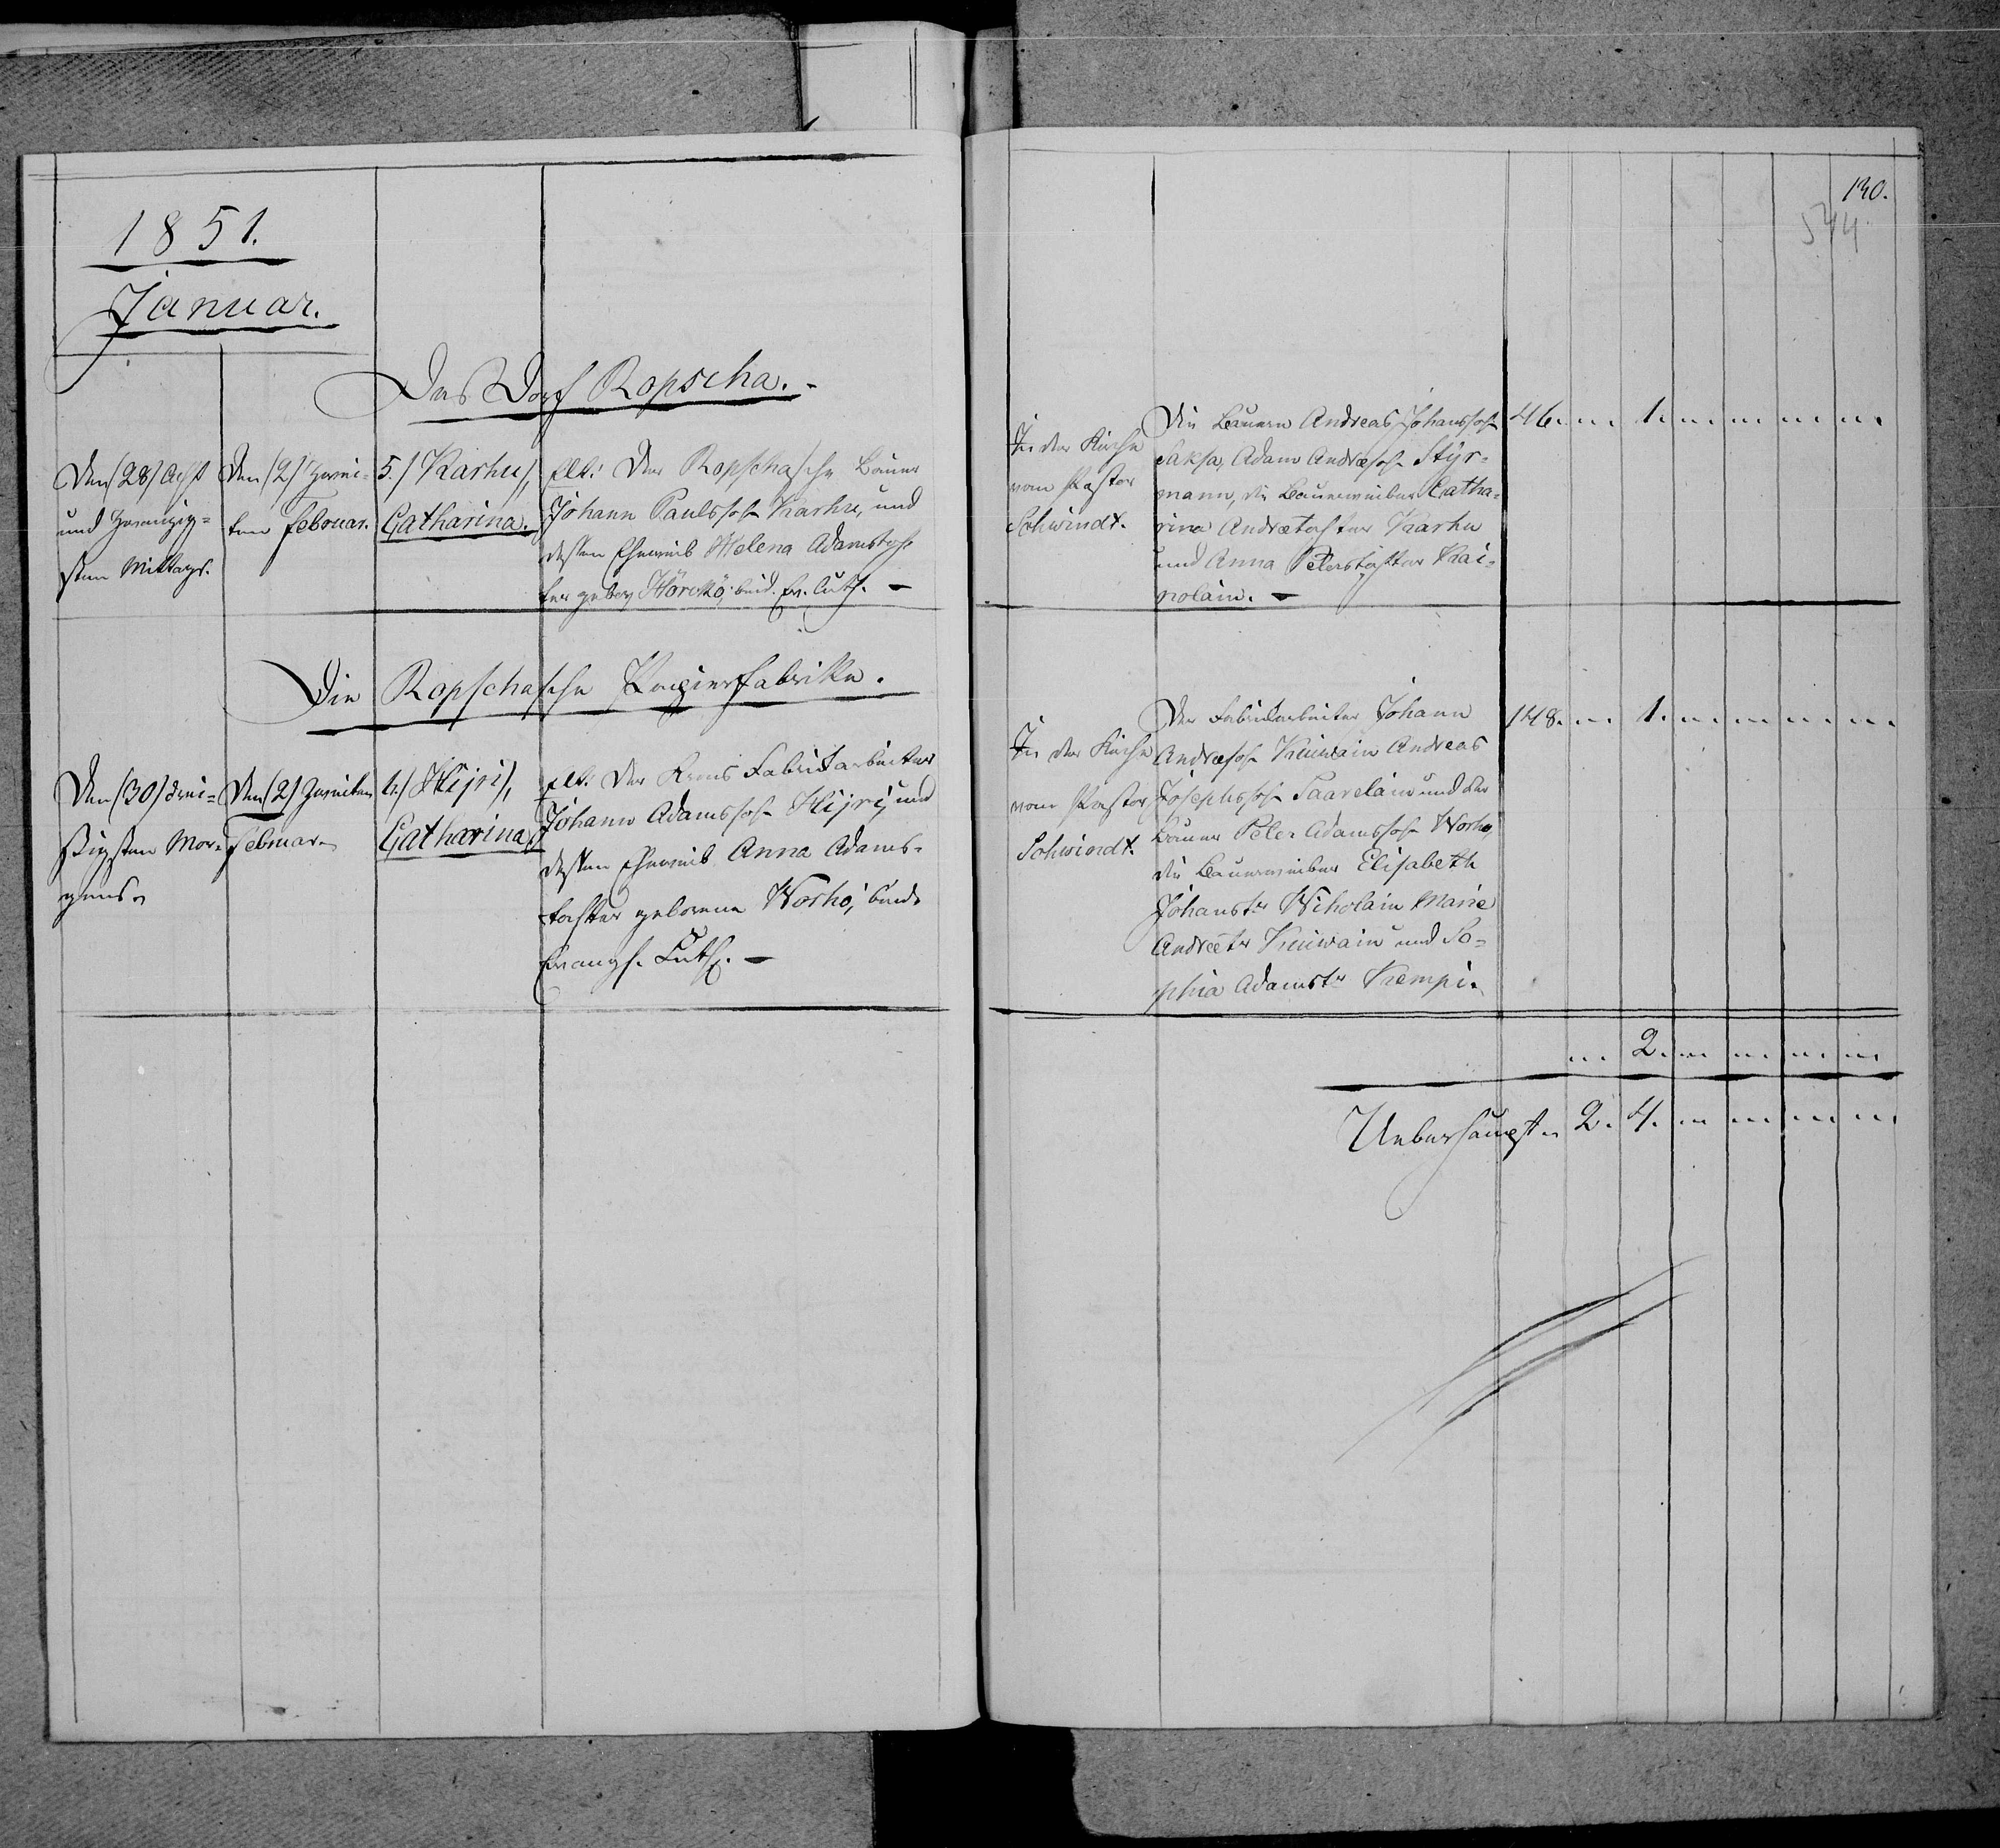 1851.
Januar.
130.
544.
Das Dorf Ropscha.
Den (28) Acht
und Zwanzig=
sten Mittags.
Den (2) Zwei=
ten Februar.
5.) Karhu,
Catharina.
Elt: Der Ropschasche Bauer
Johann Paulssohn Karhu, und
dessen Eheweib Helena Adamstoch=
ter gebor: Hörckö; beid. Ev. Luth. —
In der Kirche
vom Pastor
Schwindt.
Die Bauern Andreas Johanssohn
Saksa, Adam Andreæsohn Styr=
mann, die Bauerweiber Catha=
rina Andreætochter Karhu
und Anna Peterstochter Kai=
nolain. —
46. 1.
Die Ropschasche Papierfabrike.
Den (30) Drei=
ßigsten Mor=
gens.
Den (2) Zweiten
Februar.
6.) Hijri,
Catharina.
Elt: Der Krons Fabrikarbeiter
Johann Adamssohn Hijri, und
dessen Eheweib Anna Adams=
tochter geborene Worho; beide
Evangl. Luth. —
In der Kirche
vom Pastor
Schwindt.
Der Fabrikarbeiter Johann
Andreæsohn Kuiwain Andreas
Josephssohn Saarelain und der
Bauer Peter Adamssohn Worho,
die Bauerweiber Elisabeth
Johanstr Wiholain Maria
Andreætr Kuiwain und So=
phia Adamstr Kempi.
148. 1.
2.
Ueberhaupt 2. 4.